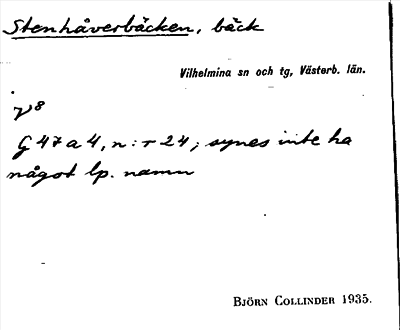 Stenhåverbäcken, bäck
Vilhelmina sn och tg, Västerb. län.
V8
G 47 a 4, n:r 24; synes inte ha
något lp. namn
BJÖRN COLLINDER 1935.